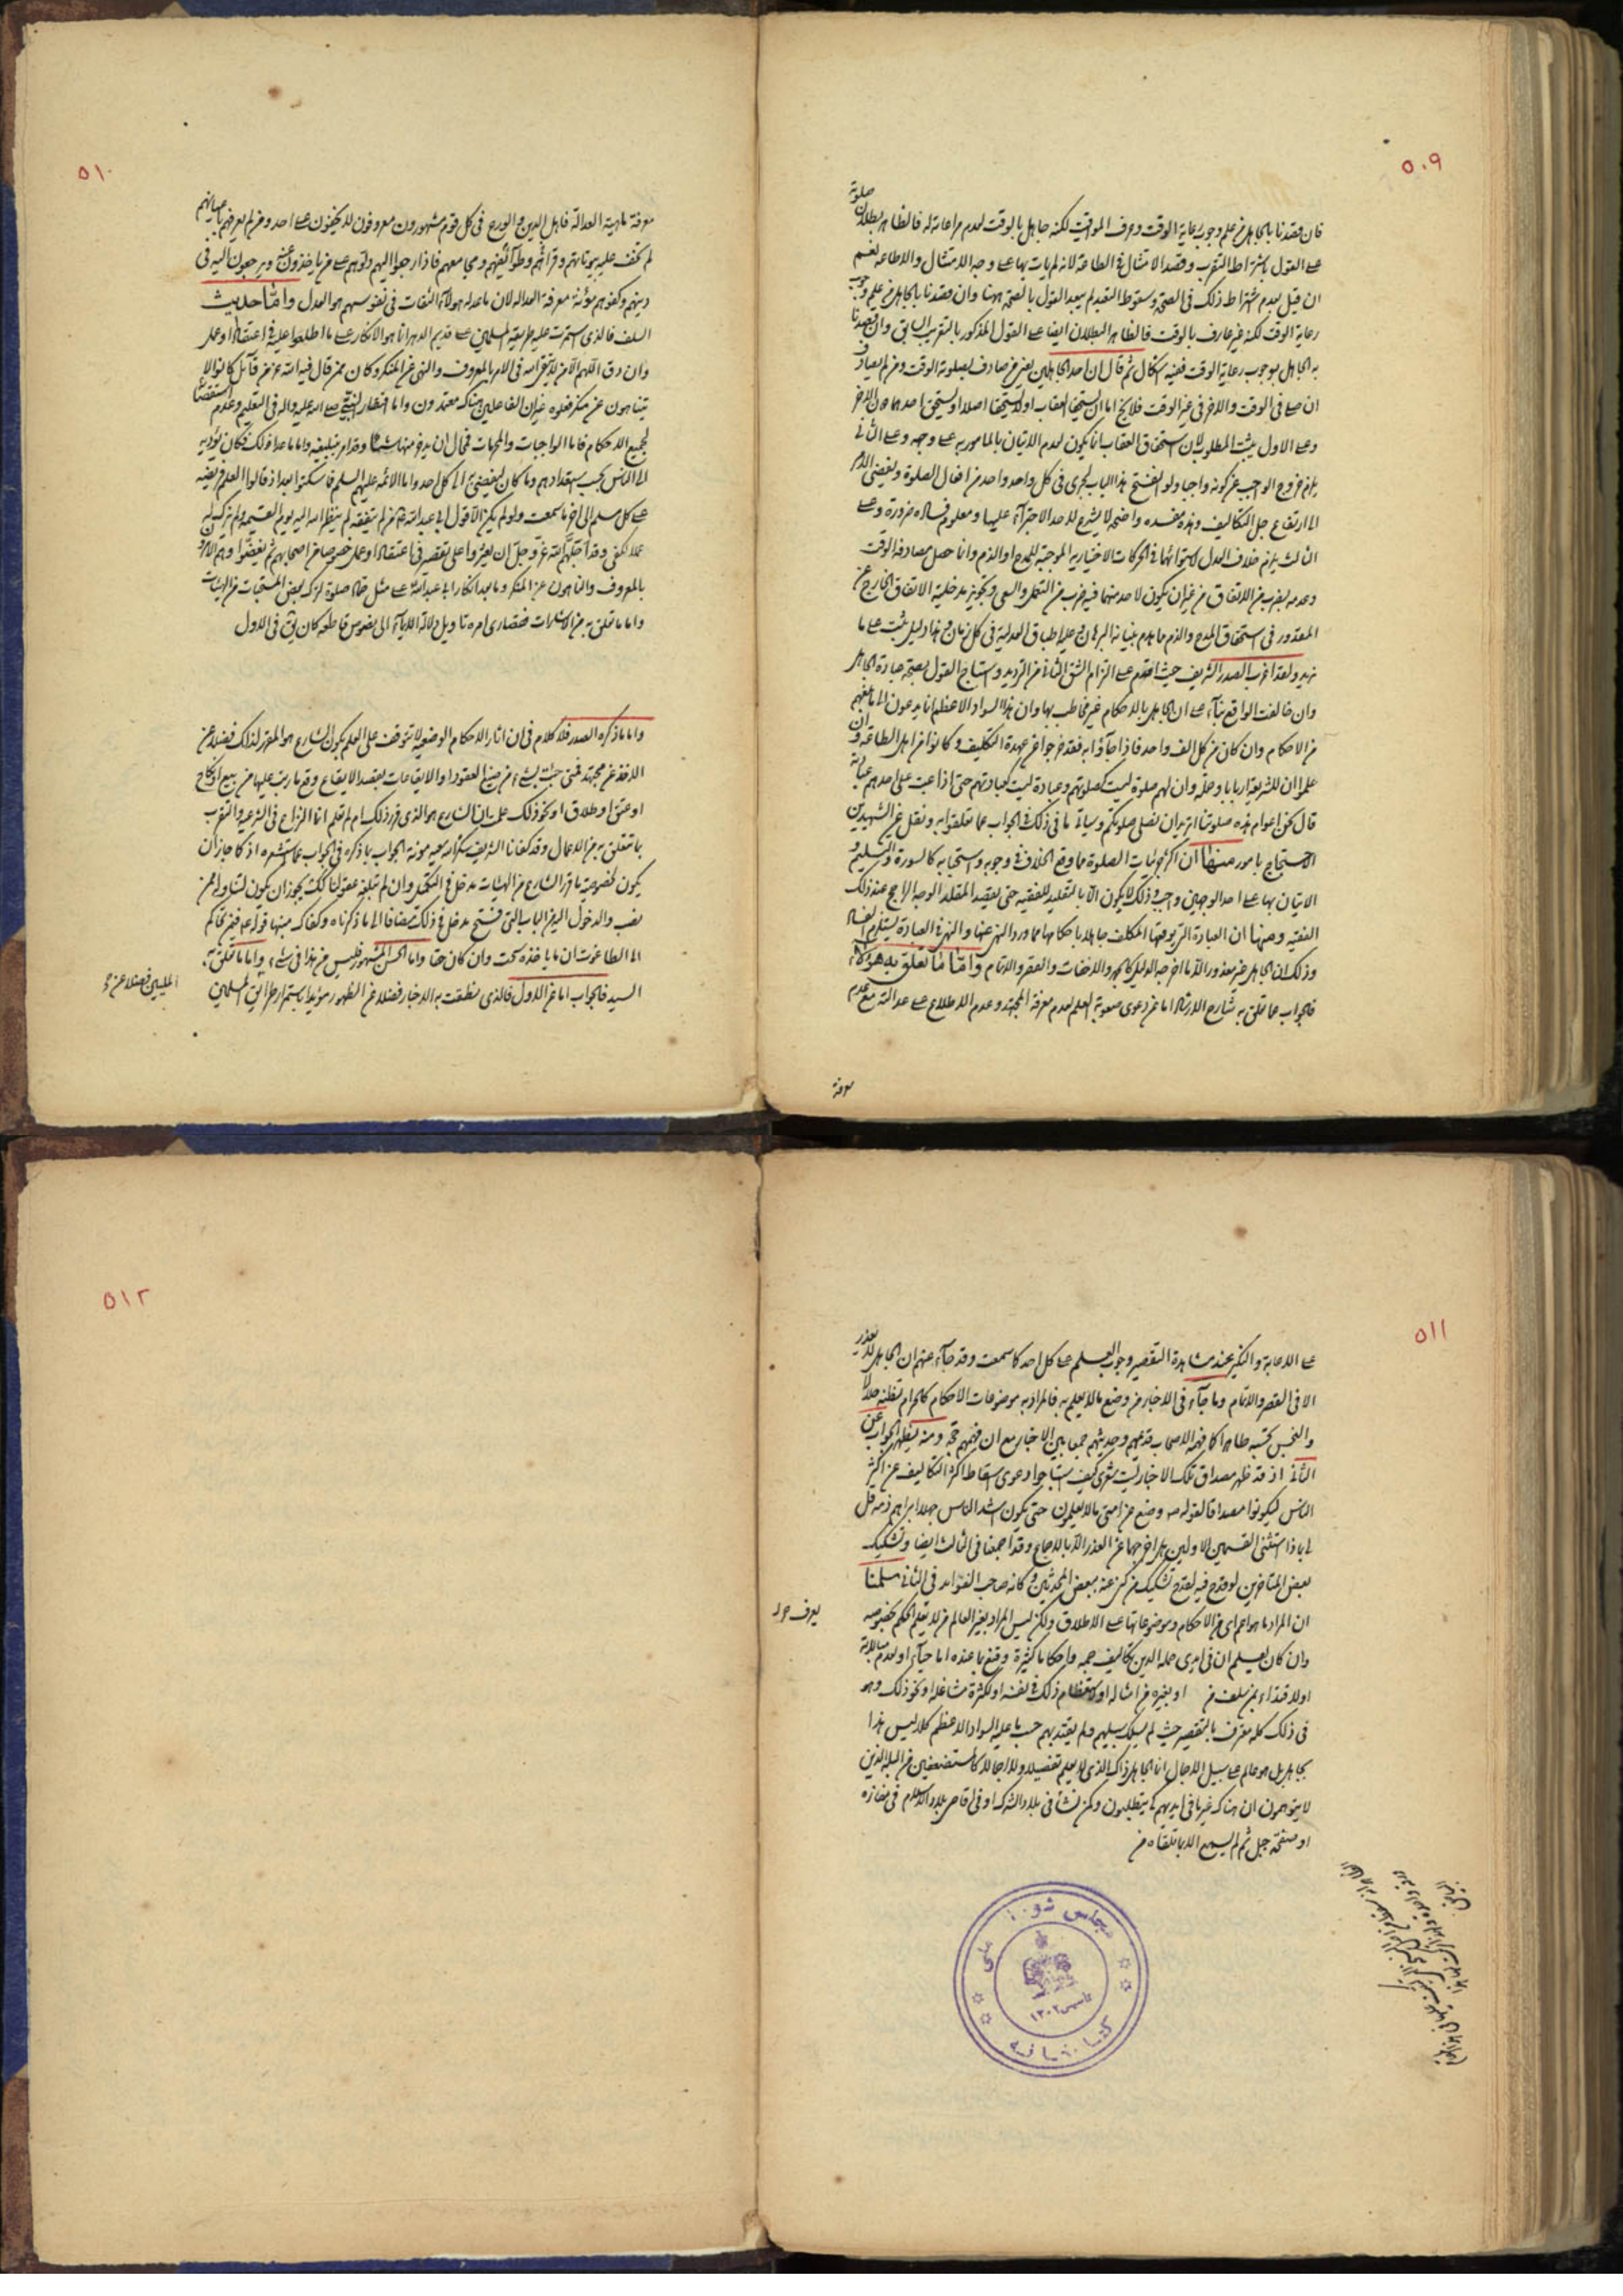 ٥٠٩
فان قصدنا بالجاهل من علم وجوب رعاية الوقت وعرف المواقيت لكنه جاهل بالوقت لعدم مراعاته له فالظاهر بطلان صلوته
على القول باشتراط التقرب وقصد الامتثال فى الطاعة لانه لم يات بها على وجه الامتثال والاطاعة نعم
ان قيل بعدم اشتراط ذلك فى الصحة وسقوط التعبد لم يبعد القول بالصحة ههنا وان قصدنا بالجاهل من علم وجوب
رعاية الوقت لكنه غير عارف بالوقت فالظاهر البطلان ايضا على القول المذكور بالتقريب السابق وان قصدنا
به الجاهل بوجوب رعاية الوقت ففيه اشكال ثم قال ان احد الجاهلين يعنى من صادف بصلوته الوقت ومن لم يصادف
ان صلى فى الوقت والاخر فى غير الوقت فلا يخ اما ان يستحقا العقاب او لا يستحقا اصلا او يستحق احدهما دون الاخر
وعلى الاول يثبت المطلوب لان استحقاق العقاب انما يكون لعدم الاتيان بالمامور به على وجهه وعلى الثانى
يلزم خروج الواجب عن كونه واجبا ولو انفتح هذا الباب لجرى فى كل واحد واحد من افعال الصلوة ويفضى الامر
الى ارتفاع جل التكاليف وهذه مفسدة واضحة لا يشرع لاحد الاجتراء عليها ومعلوم فساده ضرورة وعلى
الثالث يلزم خلاف العدل لاستوائهما فى الحركات الاختيارية الموجبة للمدح او الذم وانما حصل مصادفة الوقت
وعدمه بضرب من الاتفاق من غير ان يكون لاحد منهما فيه ضرب من التعمل والسعى وتجويز مدخلية الاتفاق الخارج عن
المقدور فى استحقاق المدح والذم مما هدم بنيانه البرهان وعليه اطباق العدلية فى كل زمان وهذا دليل يثبت على ما
نريد ولقد اغرب الصدر الشريف حيث اقدم على التزام الشق الثانى من الترديد واستنتاج القول بصحة عبادة الجاهل
وان خالفت الواقع بناء على ان الجاهل بالاحكام غير مخاطب بها وان هذا السواد الاعظم انما يدعون الى ما بلغهم
من الاحكام وان كان من كل الف واحد فاذا جاؤا به فقد خرجوا عن عهدة التكليف وكانوا من اهل الطاعة وان
علموا ان للشريعة اربابا وحملة وان لهم صلوة ليست كصلوتهم وعبادة ليست كعبادتهم حتى اذا عبت على احدهم عبادته
قال نحن عوام هذه صلوتنا اتريد ان نصلى صلوتكم وسياتى ما فى ذلك فى الجواب عما تعلقوا به ونقل عن الشهيدين
الاحتجاج بامور منها ان اكثر جزئيات الصلوة مما وقع الخلاف فى وجوبه واستحبابه كالسورة والتسليم و
الاتيان بها على احد الوجهين واجب وذلك لا يكون الا بالتقليد للفقيه حتى يقصد المقلد الوجه الراجح عند ذلك
الفقيه ومنها ان العبادة التى يوقعها المكلف جاهلا باحكامها مما ورد النهى عنها والنهى فى العبادة يستلزم الفساد
وذلك ان الجاهل غير معذور الا ما اخرجه الدليل كالجهر والاخفات والقصر والاتمام واما ما تعلق به هؤلاء
فالجواب عما تعلق به شارح الارشاد اما عن دعوى صعوبة العلم لعدم معرفة المجتهد وعدم الاطلاع على عدالته مع عدم
معرفة
٥١٠
معرفة ماهية العدالة فاهل الدين والورع فى كل قوم مشهورون معروفون لا يخفون على احد ومن لم يعرفهم باعيانهم
لم تخف عليه بيوتاتهم وقراهم وطوائفهم ومجامعهم فاذا رجعوا اليهم دلوهم على من ياخذون عنه ويرجعون اليه فى
دينهم وكفوهم مؤنة معرفة العدالة لان ما عدله هؤلاء الثقات فى نفوسهم هو العدل واما حديث
السلف فالذى استمرت عليه طريقة المسلمين على قديم الدهر انما هو الانكار على ما اطلعوا عليه فى اعتقاد او عمل
وان دق اللهم الا من لا يتقى الله فى الامر بالمعروف والنهى عن المنكر وكان ممن قال فيه الله عز من قائل كانوا لا
يتناهون عن منكر فعلوه غير ان الفاعلين هناك معتمدون واما اقتصار النبى صلى الله عليه واله فى التعليم وعدم استقصائه
لجميع الاحكام فاما الواجبات والمحرمات فمحال ان يدع منها شيئا وقد امر بتبليغه واما ما عدا ذلك فكان يؤديه
الى الناس بحسب استعدادهم وما كان ليفضى به الى كل احد واما الائمة عليهم السلم فما سكتوا بعد اذ قالوا العلم فريضة
على كل مسلم الى اخر ما سمعت ولو لم يكن الا قول ابى عبد الله ع من لم يتفقه لم ينظر الله اليه يوم القيمة ولم يزك له
عملا لكفى وقد اجلهم الله عز وجل ان يعثروا على تقصير فى اعتقاد او عمل خصوصا من اصحابهم ثم يغضوا وهم الامرون
بالمعروف والناهون عن المنكر وما بعد انكار ابى عبد الله ع على مثل حماد صلوة لتركه بعض المستحبات من الهيئات
واما ما تعلق به من الاشارات فقصارى امره تاويل دلالة الاباء الى نصوص قاطعة كان يثق فى الاول
واما ما ذكره الصدر فلا كلام فى ان اثار الاحكام الوضعية لا تتوقف على العلم بكون الشارع هو المقرر لذلك فضلا عن
الاخذ عن مجتهد فمتى جئت بشىء من صيغ العقود او الايقاعات بقصد الايقاع وقع ما رتب عليها من بيع او نكاح
او عتق او طلاق او نحو ذلك علمت ان الشارع هو الذى قرر ذلك ام لم تعلم انما النزاع فى الشرعية والتقرب
بما تتعلق به من الاعمال وقد كفانا الشريف شكر الله سعيه مؤنة الجواب بما ذكره فى الجواب عما استشعره اذ كما جاز ان
يكون لخصوصية ما قرر الشارع من الهيئات مدخل فى التكميل وان لم تبلغه عقولنا كك يجوز ان يكون لتناوله عمن
نصب والدخول اليه من الباب التى فتح مدخل فى ذلك مضافا الى ما ذكرناه وكفاك منبها قوله ع فيمن تحاكم
الى الطاغوت ان ما ياخذه سحت وان كان حقا واما الحسن المشهور فليس من هذا فى شىء واما ما تعلق به
السيد فالجواب اما عن الاول فالذى نطقت به الاخبار فضلا عن الظهور مؤيدا باستمرار طرايق المسلمين
٥١١
على الاعابة والنكير عند مشاهدة التقصير وجوب العلم على كل احد كما سمعت وقد جاء عنهم ان الجاهل لا يعذر
الا فى القصر والاتمام وما جاء فى الاخبار من وضع ما لا يعلم به فالمراد به موضوعات الاحكام كالحرام تظنه حلالا
والنجس تحسبه طاهرا كما فهمه الاصحاب قديمهم وحديثهم جمعا بين الاخبار مع ان فهمهم حجة ومنه يظهر الجواب عن
الثانى اذ قد ظهر مصداق تلك الاخبار ليت شعرى كيف استباحوا دعوى اسقاط اكثر التكاليف عن اكثر
الناس ليكونوا مصداقا لقوله ص وضع عن امتى ما لا يعلمون حتى يكون اشد الناس جهلا ابراهم ذمة قل
لى ماذا استثنى القسمين الاولين هل اخرجهما عن العذر الا بالاجماع وقد اجمعنا فى الثالث ايضا وتشكيك
بعض المتاخرين لو قدح فيه لقدح تشكيك من كثر عنه بعض المحدثين وكانه صاحب الفوائد فى الثانى سلمنا
ان المراد ما هو اعم اى من الاحكام وموضوعاتها على الاطلاق ولكن ليس المراد بغير العالم من لا يعلم الحكم بخصوصه
وان كان يعلم ان فى ايدى حملة الدين تكاليف جمة واحكاما كثيرة وقنع بما عنده اما حياء او لعدم مبالاة
او لاقتداء بمن سلف من او بغيره من امثاله او لاستعظام ذلك فى نفسه او لكثرة مشاغله او نحو ذلك وهو
فى ذلك كله معترف بالتقصير حيث لم يسلك سبيلهم ولم يقتد بهم حسب ما عليه السواد الاعظم كلا ليس هذا
بجاهل بل هو عالم على سبيل الاجمال انما الجاهل ذاك الذى لا يعلم تفصيلا ولا اجمالا كالمستضعفين من البله الذين
لا يتوهمون ان هناك غير ما فى ايديهم كى يتطلبون وكمن نشأ فى بلاد الشرك او فى اقاصى بلاد الاسلام فى مفازة
او صفحة جبل ثم لم يسمع الا بما تلقاه من
مجلس شورای ملی
تأسیس ١٣٠٢
کتابخانه
٥١٢